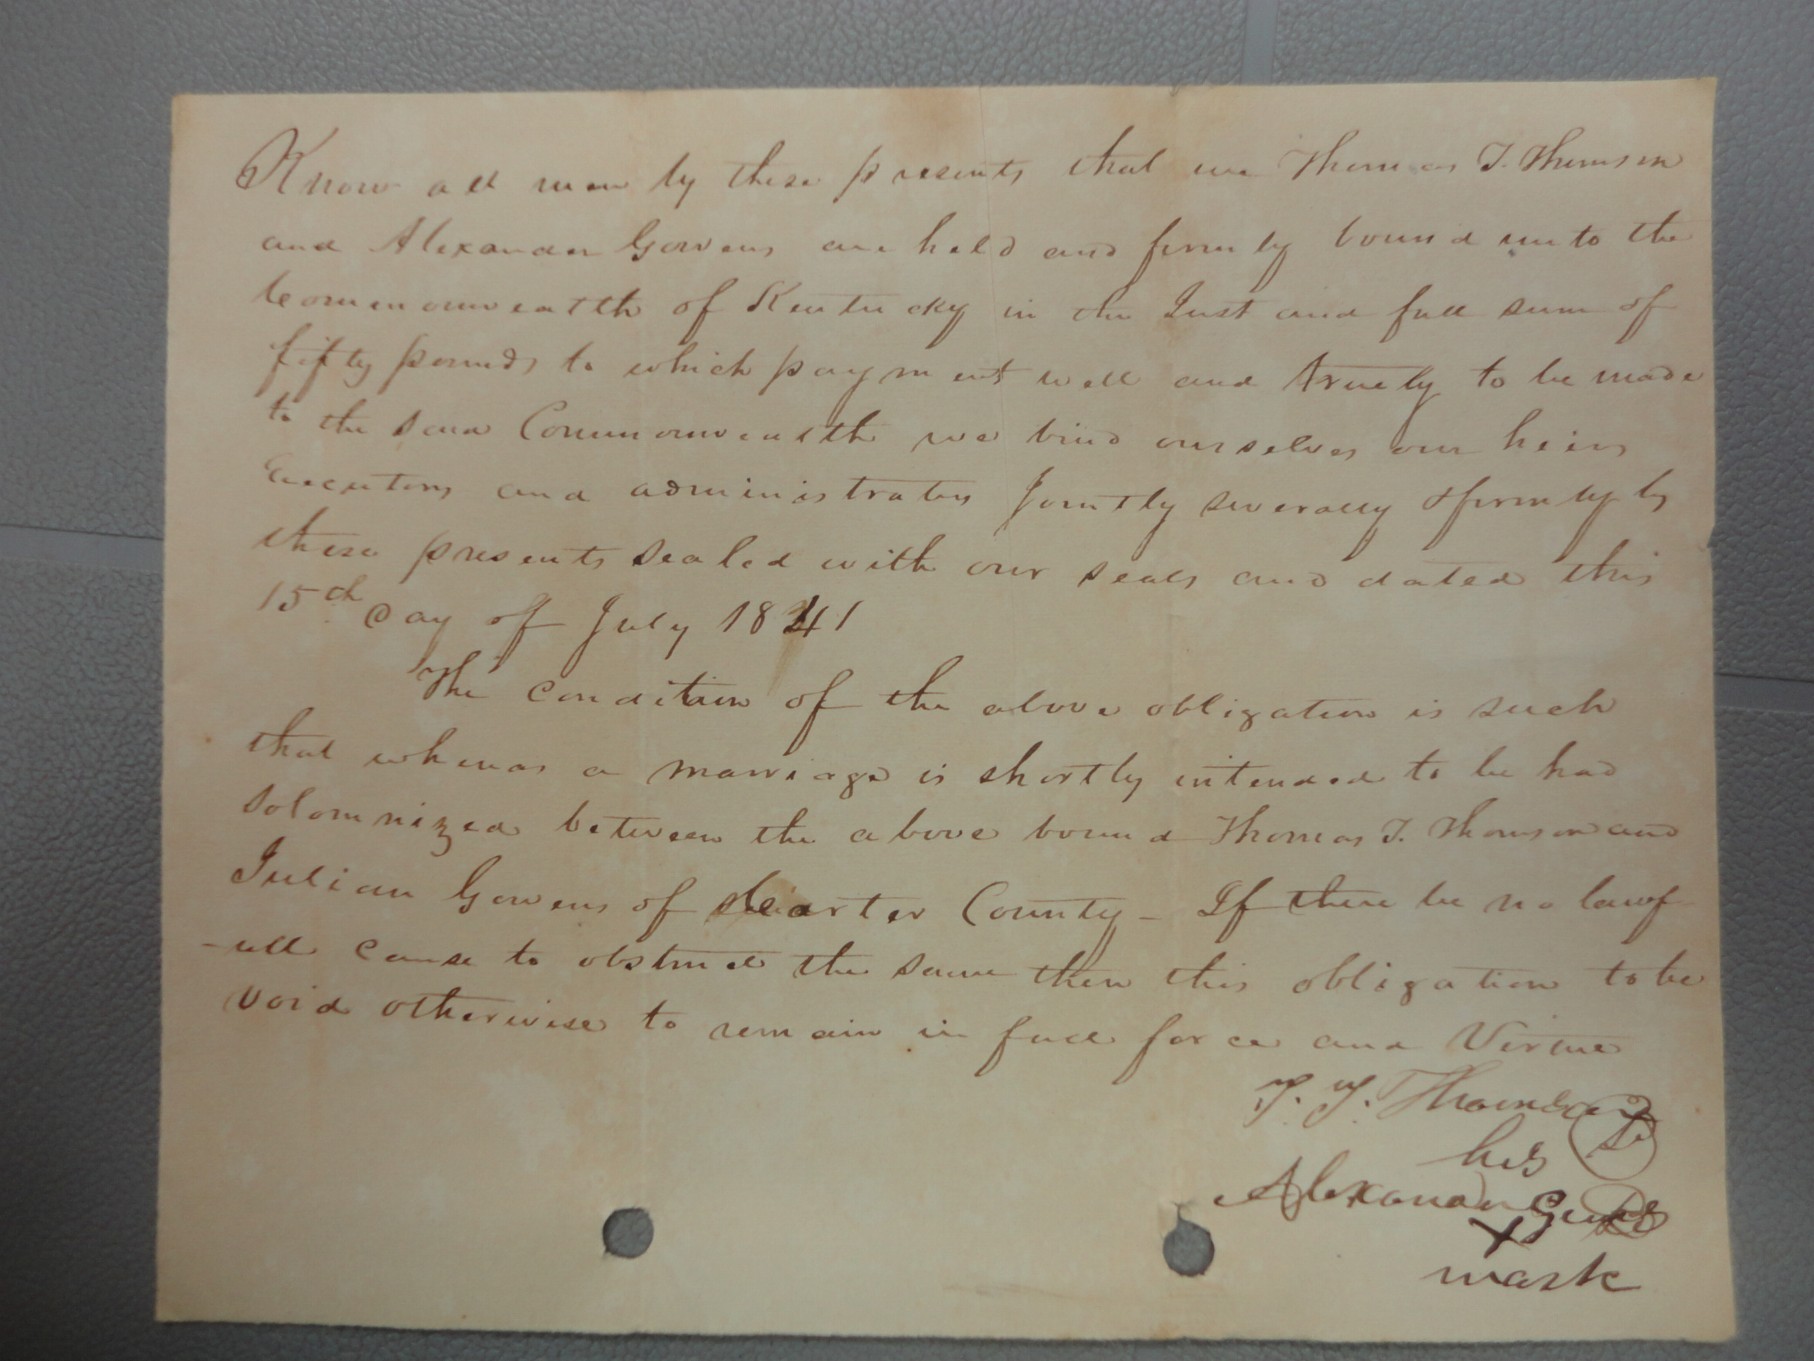 Know all men by these presents that we Thomas T. Thomson
and Alexander Gowens are held and firmly bound unto the
Commonwealth of Kentucky in the Just and full sum of
fifty pounds to which payment well and truely to be made
to the said Commonwealth we bind ourselves our heirs
Executors and administrators Jointly severally & firmly by
these presents sealed with our seals and dated this
15th day of July 1841
The condition of the above obligation is such
that whereas a marriage is shortly intended to be had
Solomnized between the above bound Thomas T. Thomson and
Julian Gowens of Carter County - If there be no lawf-
-ull cause to obstruct the same then this obligation to be
void otherwise to remain in full force and Virtue
T. T. Thomson
his
Alexander
X
mark